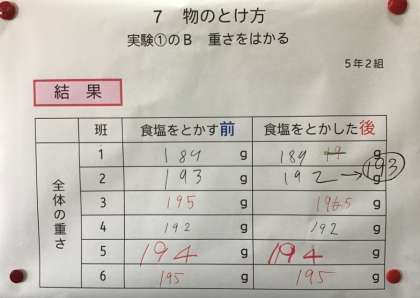 7 物のとけ方
実験①のB 重さをはかる
5年2組
結果
班 食塩をとかす前 食塩をとかした後
全体の重さ
1 189 g 189 g
2 193 g 192 →193 g
3 195 g 196.5 g
4 192 g 192 g
5 194 g 194 g
6 195 g 195 g